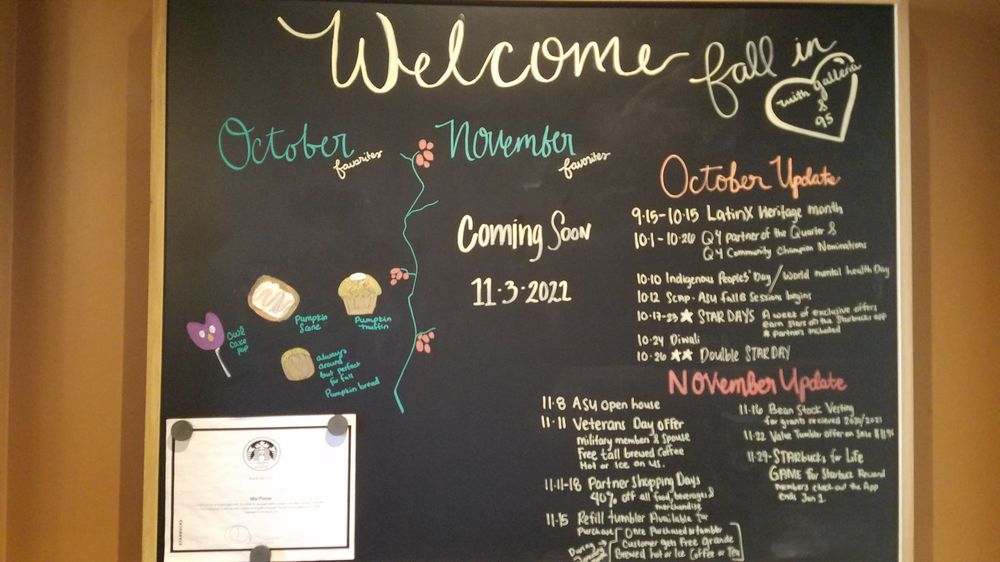 Welcome
fall in
with galleria
&
95
October
favorites
November
favorites
Coming Soon
11·3·2022
Owl
Cake
pop
Pumpkin
Scone
Pumpkin
muffin
always
around
but perfect
for fall
Pumpkin bread
October Update
9·15-10·15 Latinx Heritage month
10·1-10·26 Q4 partner of the Quarter &
Q4 Community Champion Nominations
10·10 Indigenous Peoples' Day/World mental health Day
10·12 Scmp·Asu fall B Sessions begins
10·17-23 ★ STAR DAYS A week of exclusive offers
earn stars on the Starbucks app
& partners included
10·24 Diwali
10·26 ★★ Doulble STAR DAY
November Update
11·8 ASU open house
11·11 Veterans Day offer
military members & Spouse
Free tall brewed Coffee
Hot or Ice on us.
11·11-18 Partner Shopping Days
40% off all food, beverages &
merchandise
11·15 Refill tumbler Available for
Purchase
Once Purchased tumbler
Customer gets Free Grande
Brewed hot or Ice Coffee or Tea
During
11·16 Bean Stock Vesting
for grants recieved 2020/2021
11·22 Value Tumbler offer on Sale
11·29- STARbucks for Life
GAME for Starbucks Reward
members check out the App
Ends Jan 1
STARBUCKS